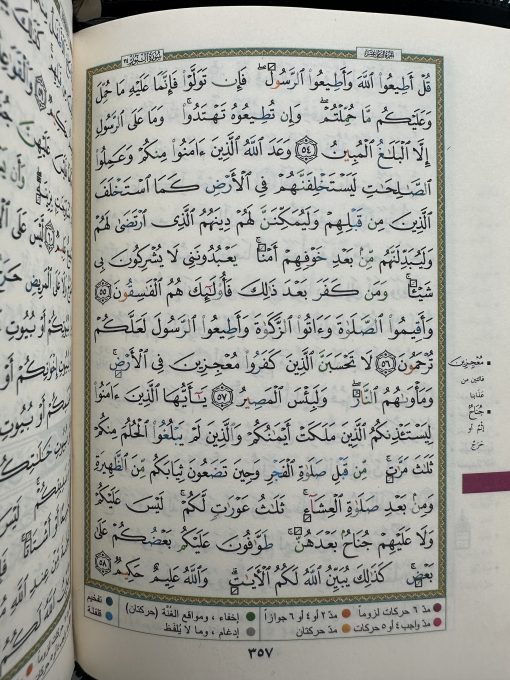 سورة النور ٢٤
الجزء الثامن عشر
قُلْ أَطِيعُوا۟ ٱللَّهَ وَأَطِيعُوا۟ ٱلرَّسُولَ ۖ فَإِن تَوَلَّوْا۟ فَإِنَّمَا عَلَيْهِ مَا حُمِّلَ
وَعَلَيْكُم مَّا حُمِّلْتُمْ ۖ وَإِن تُطِيعُوهُ تَهْتَدُوا۟ ۚ وَمَا عَلَى ٱلرَّسُولِ
إِلَّا ٱلْبَلَٰغُ ٱلْمُبِينُ ٥٤ وَعَدَ ٱللَّهُ ٱلَّذِينَ ءَامَنُوا۟ مِنكُمْ وَعَمِلُوا۟
ٱلصَّٰلِحَٰتِ لَيَسْتَخْلِفَنَّهُمْ فِى ٱلْأَرْضِ كَمَا ٱسْتَخْلَفَ
ٱلَّذِينَ مِن قَبْلِهِمْ وَلَيُمَكِّنَنَّ لَهُمْ دِينَهُمُ ٱلَّذِى ٱرْتَضَىٰ لَهُمْ
وَلَيُبَدِّلَنَّهُم مِّنۢ بَعْدِ خَوْفِهِمْ أَمْنًا ۚ يَعْبُدُونَنِى لَا يُشْرِكُونَ بِى
شَيْـًٔا ۚ وَمَن كَفَرَ بَعْدَ ذَٰلِكَ فَأُو۟لَٰٓئِكَ هُمُ ٱلْفَٰسِقُونَ ٥٥
وَأَقِيمُوا۟ ٱلصَّلَوٰةَ وَءَاتُوا۟ ٱلزَّكَوٰةَ وَأَطِيعُوا۟ ٱلرَّسُولَ لَعَلَّكُمْ
تُرْحَمُونَ ٥٦ لَا تَحْسَبَنَّ ٱلَّذِينَ كَفَرُوا۟ مُعْجِزِينَ فِى ٱلْأَرْضِ ۚ
وَمَأْوَىٰهُمُ ٱلنَّارُ ۖ وَلَبِئْسَ ٱلْمَصِيرُ ٥٧ يَٰٓأَيُّهَا ٱلَّذِينَ ءَامَنُوا۟
لِيَسْتَـْٔذِنكُمُ ٱلَّذِينَ مَلَكَتْ أَيْمَٰنُكُمْ وَٱلَّذِينَ لَمْ يَبْلُغُوا۟ ٱلْحُلُمَ مِنكُمْ
ثَلَٰثَ مَرَّٰتٍ ۚ مِّن قَبْلِ صَلَوٰةِ ٱلْفَجْرِ وَحِينَ تَضَعُونَ ثِيَابَكُم مِّنَ ٱلظَّهِيرَةِ
وَمِنۢ بَعْدِ صَلَوٰةِ ٱلْعِشَآءِ ۚ ثَلَٰثُ عَوْرَٰتٍ لَّكُمْ ۚ لَيْسَ عَلَيْكُمْ
وَلَا عَلَيْهِمْ جُنَاحٌۢ بَعْدَهُنَّ ۚ طَوَّٰفُونَ عَلَيْكُم بَعْضُكُمْ عَلَىٰ
بَعْضٍ ۚ كَذَٰلِكَ يُبَيِّنُ ٱللَّهُ لَكُمُ ٱلْءَايَٰتِ ۗ وَٱللَّهُ عَلِيمٌ حَكِيمٌ ٥٨
مُعْجِزِينَ
فائتين من
عذابنا
جُنَاحٌ
إثم أو
حرج
مدّ ٦ حركات لزوماً مدّ ٢ أو ٤ أو ٦ جوازاً إخفاء، ومواقع الغُنَّة (حركتان) تفخيم
مدّ واجب ٤ أو ٥ حركات مدّ حركتان إدغام، وما لا يُلفَظ قلقلة
٣٥٧